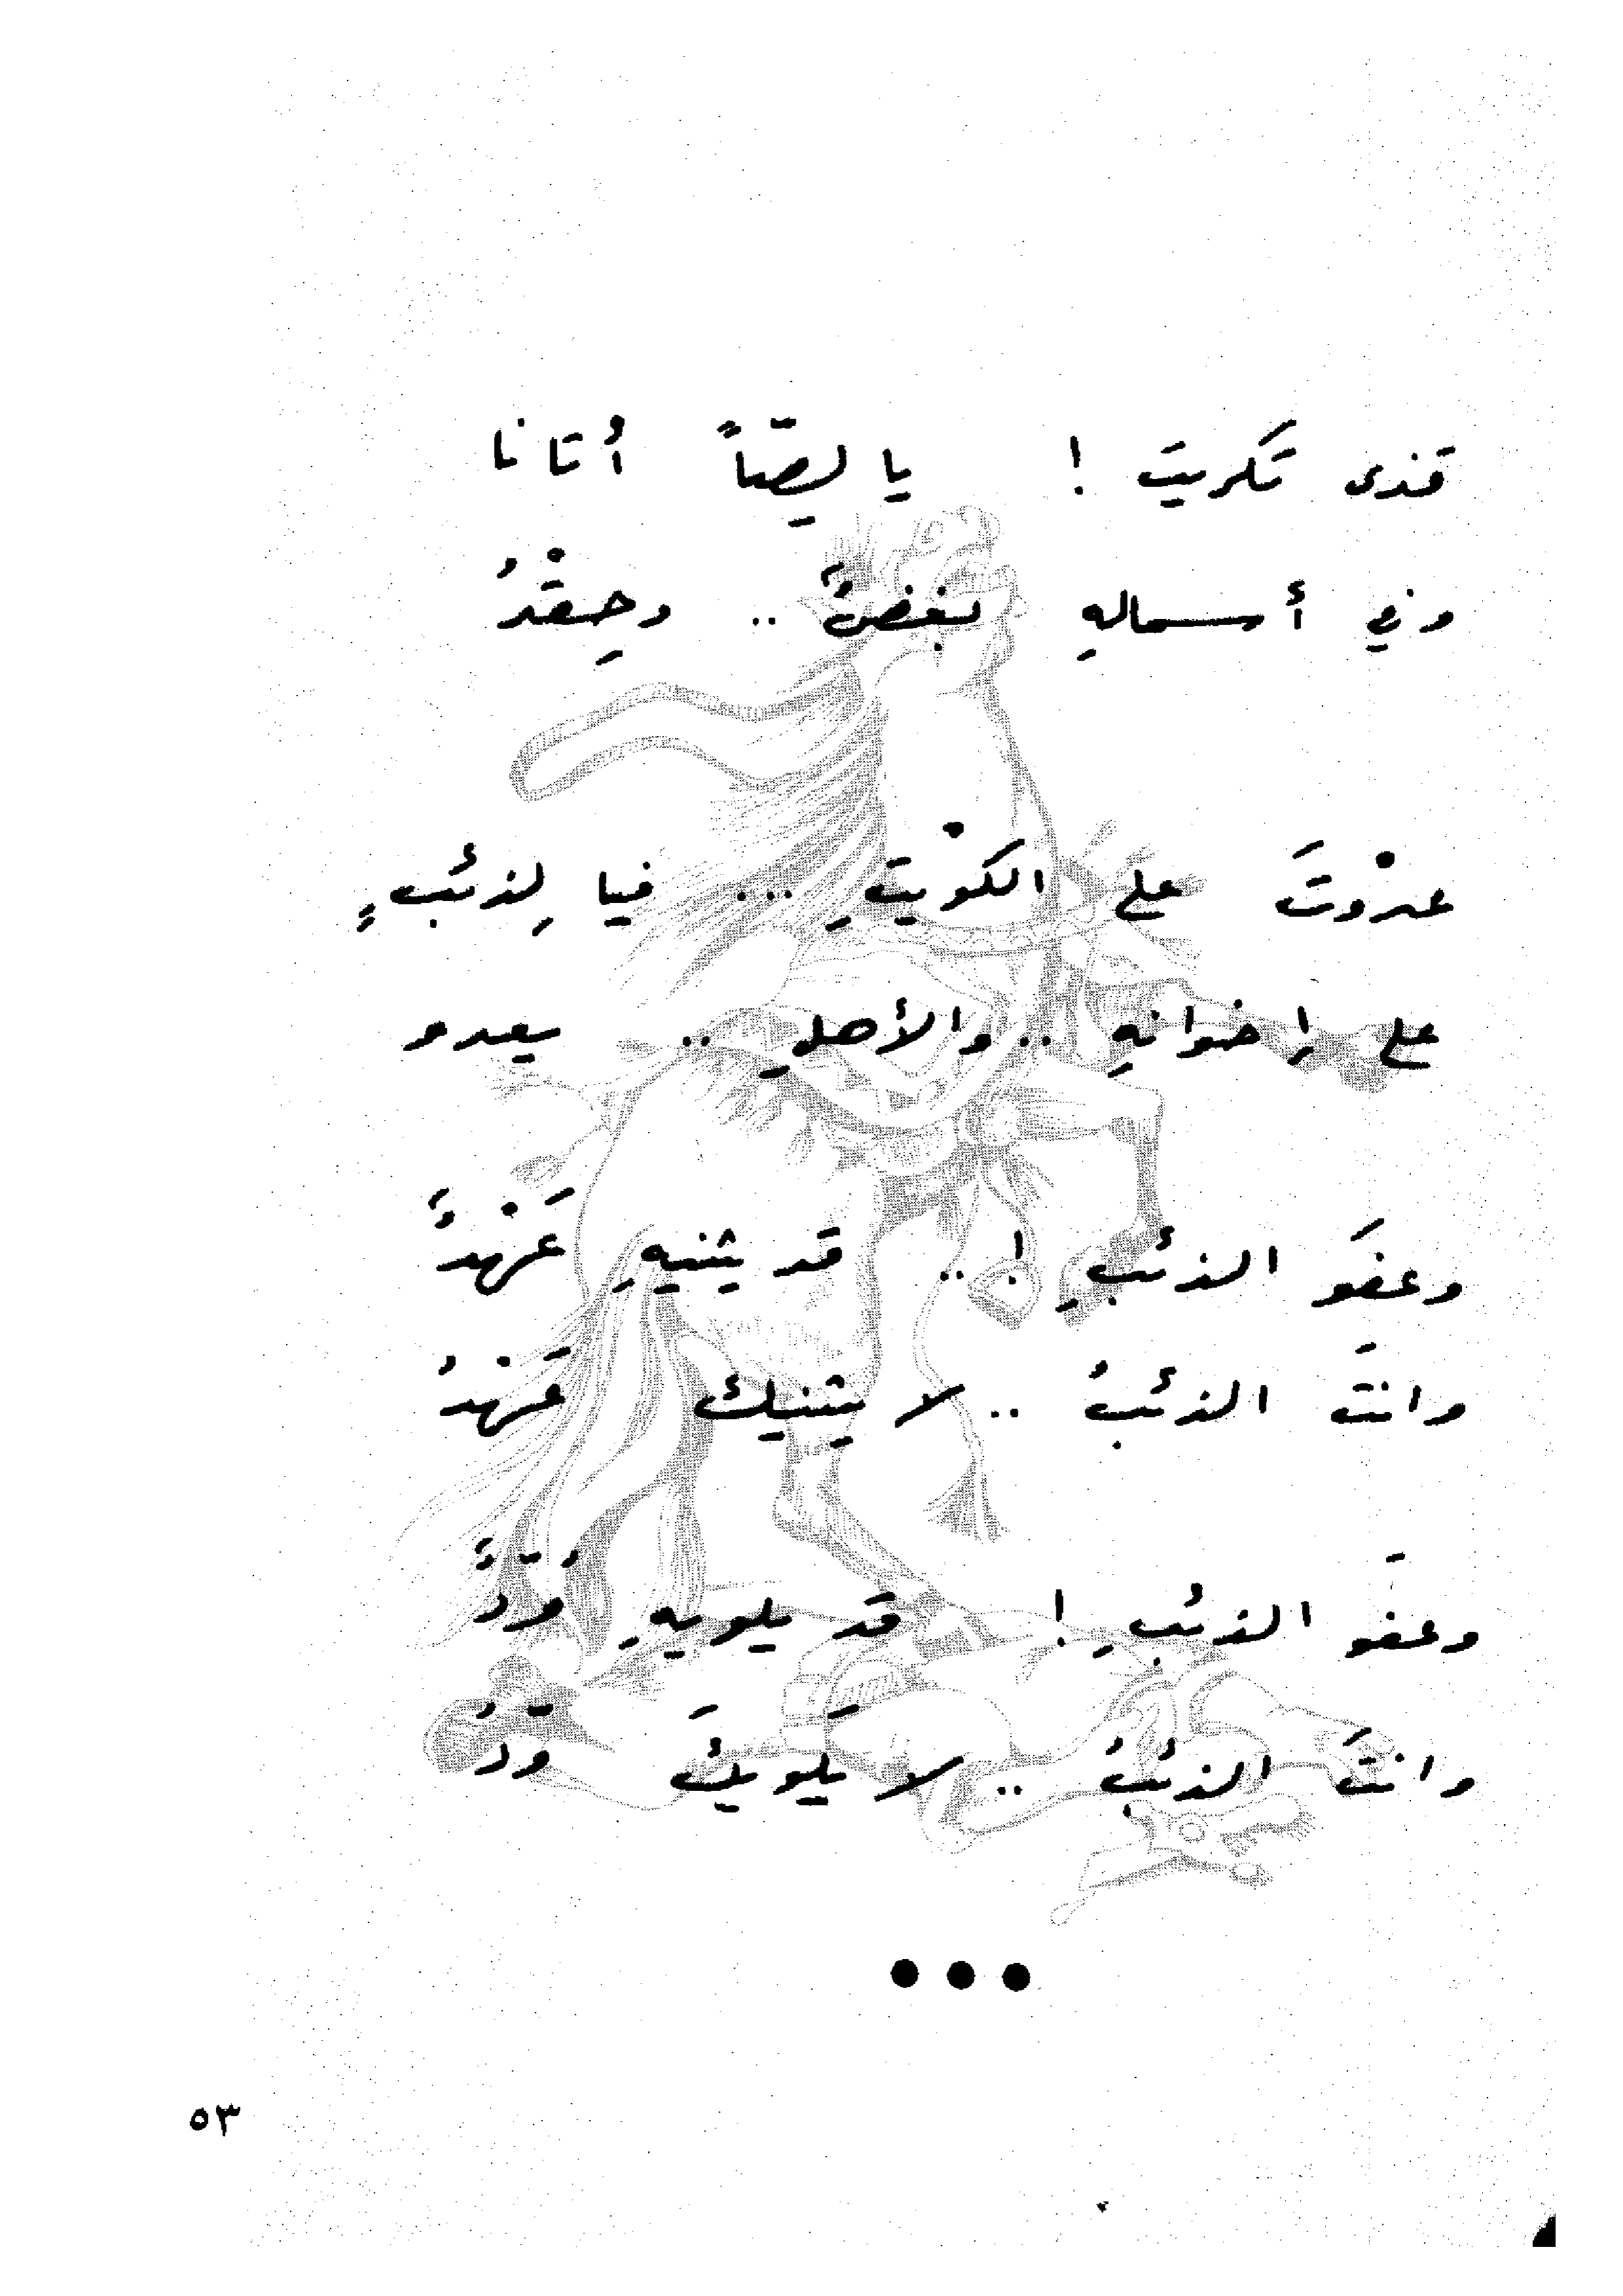 قذى تكريتَ ! يا لِصّاً أتانا
وفي أسمالهِ بغضٌ .. وحِقْدُ
عدْوتَ علَى الكوْيتِ ... فيا لِذئبٍ
على إخوانهِ .. والأهلِ .. يعدو
وعفوَ الذئبِ ! .. قد يثنيهِ عَهْدٌ
وانتَ الذئبُ .. لا يثنيك عَهْدُ
وعفوَ الذئبِ ! قد يلويهِ وُدٌّ
وانتَ الذئبُ .. لا يَلويكَ وُدُّ
•••
٥٣